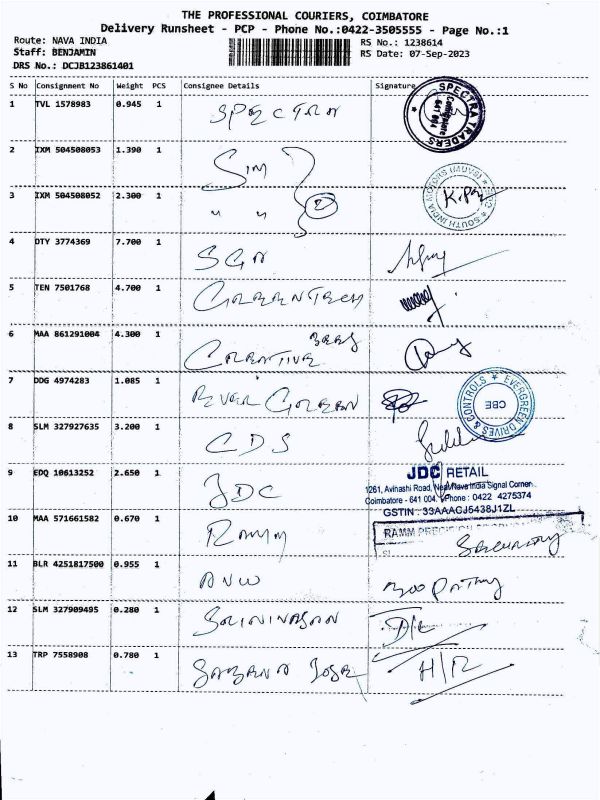 THE PROFESSIONAL COURIERS, COIMBATORE
Delivery Runsheet - PCP - Phone No.:0422-3505555 - Page No.:1
Route: NAVA INDIA
RS No.: 1238614
Staff: BENJAMIN
RS Date: 07-Sep-2023
DRS No.: DCJB123861401
S No Consignment No Weight PCS Consignee Details Signature
1 TVL 1578983 0.945 1 SPECTRA
SPECTRA TRADERS
Coimbatore
641 004
2 IXM 504508053 1.390 1 SIM
3 IXM 504508052 2.300 1 " " 2
SOUTH INDIA MOTORS (MUVS)
4 DTY 3774369 7.700 1 SGA
5 TEN 7501768 4.700 1 GREENTECH
6 MAA 861291004 4.300 1 CREATIVE BEES
7 DDG 4974283 1.085 1 EVER GREEN
EVERGREEN DRIVES & CONTROLS
CBE
8 SLM 327927635 3.200 1 CDS
9 EDQ 10613252 2.650 1 JDC
JDC RETAIL
1261, Avinashi Road, Near Nava India Signal Corner
Coimbatore - 641 004. Phone : 0422 4275374
GSTIN : 33AAACJ5438J1ZL
10 MAA 571661582 0.670 1 RAMM
RAMM PRECISION
Security
11 BLR 4251817500 0.955 1 ANW Boopathy
12 SLM 327909495 0.280 1 SRINIVASAN D/L
13 TRP 7558908 0.780 1 SABENA JOSE H/R